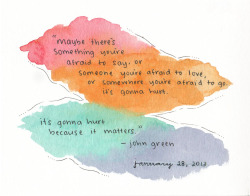 "maybe there's
something you're
afraid to say, or
someone you're afraid to love,
or somewhere you're afraid to go.
it's gonna hurt.
it's gonna hurt
because it matters."
- john green
january 28, 2012